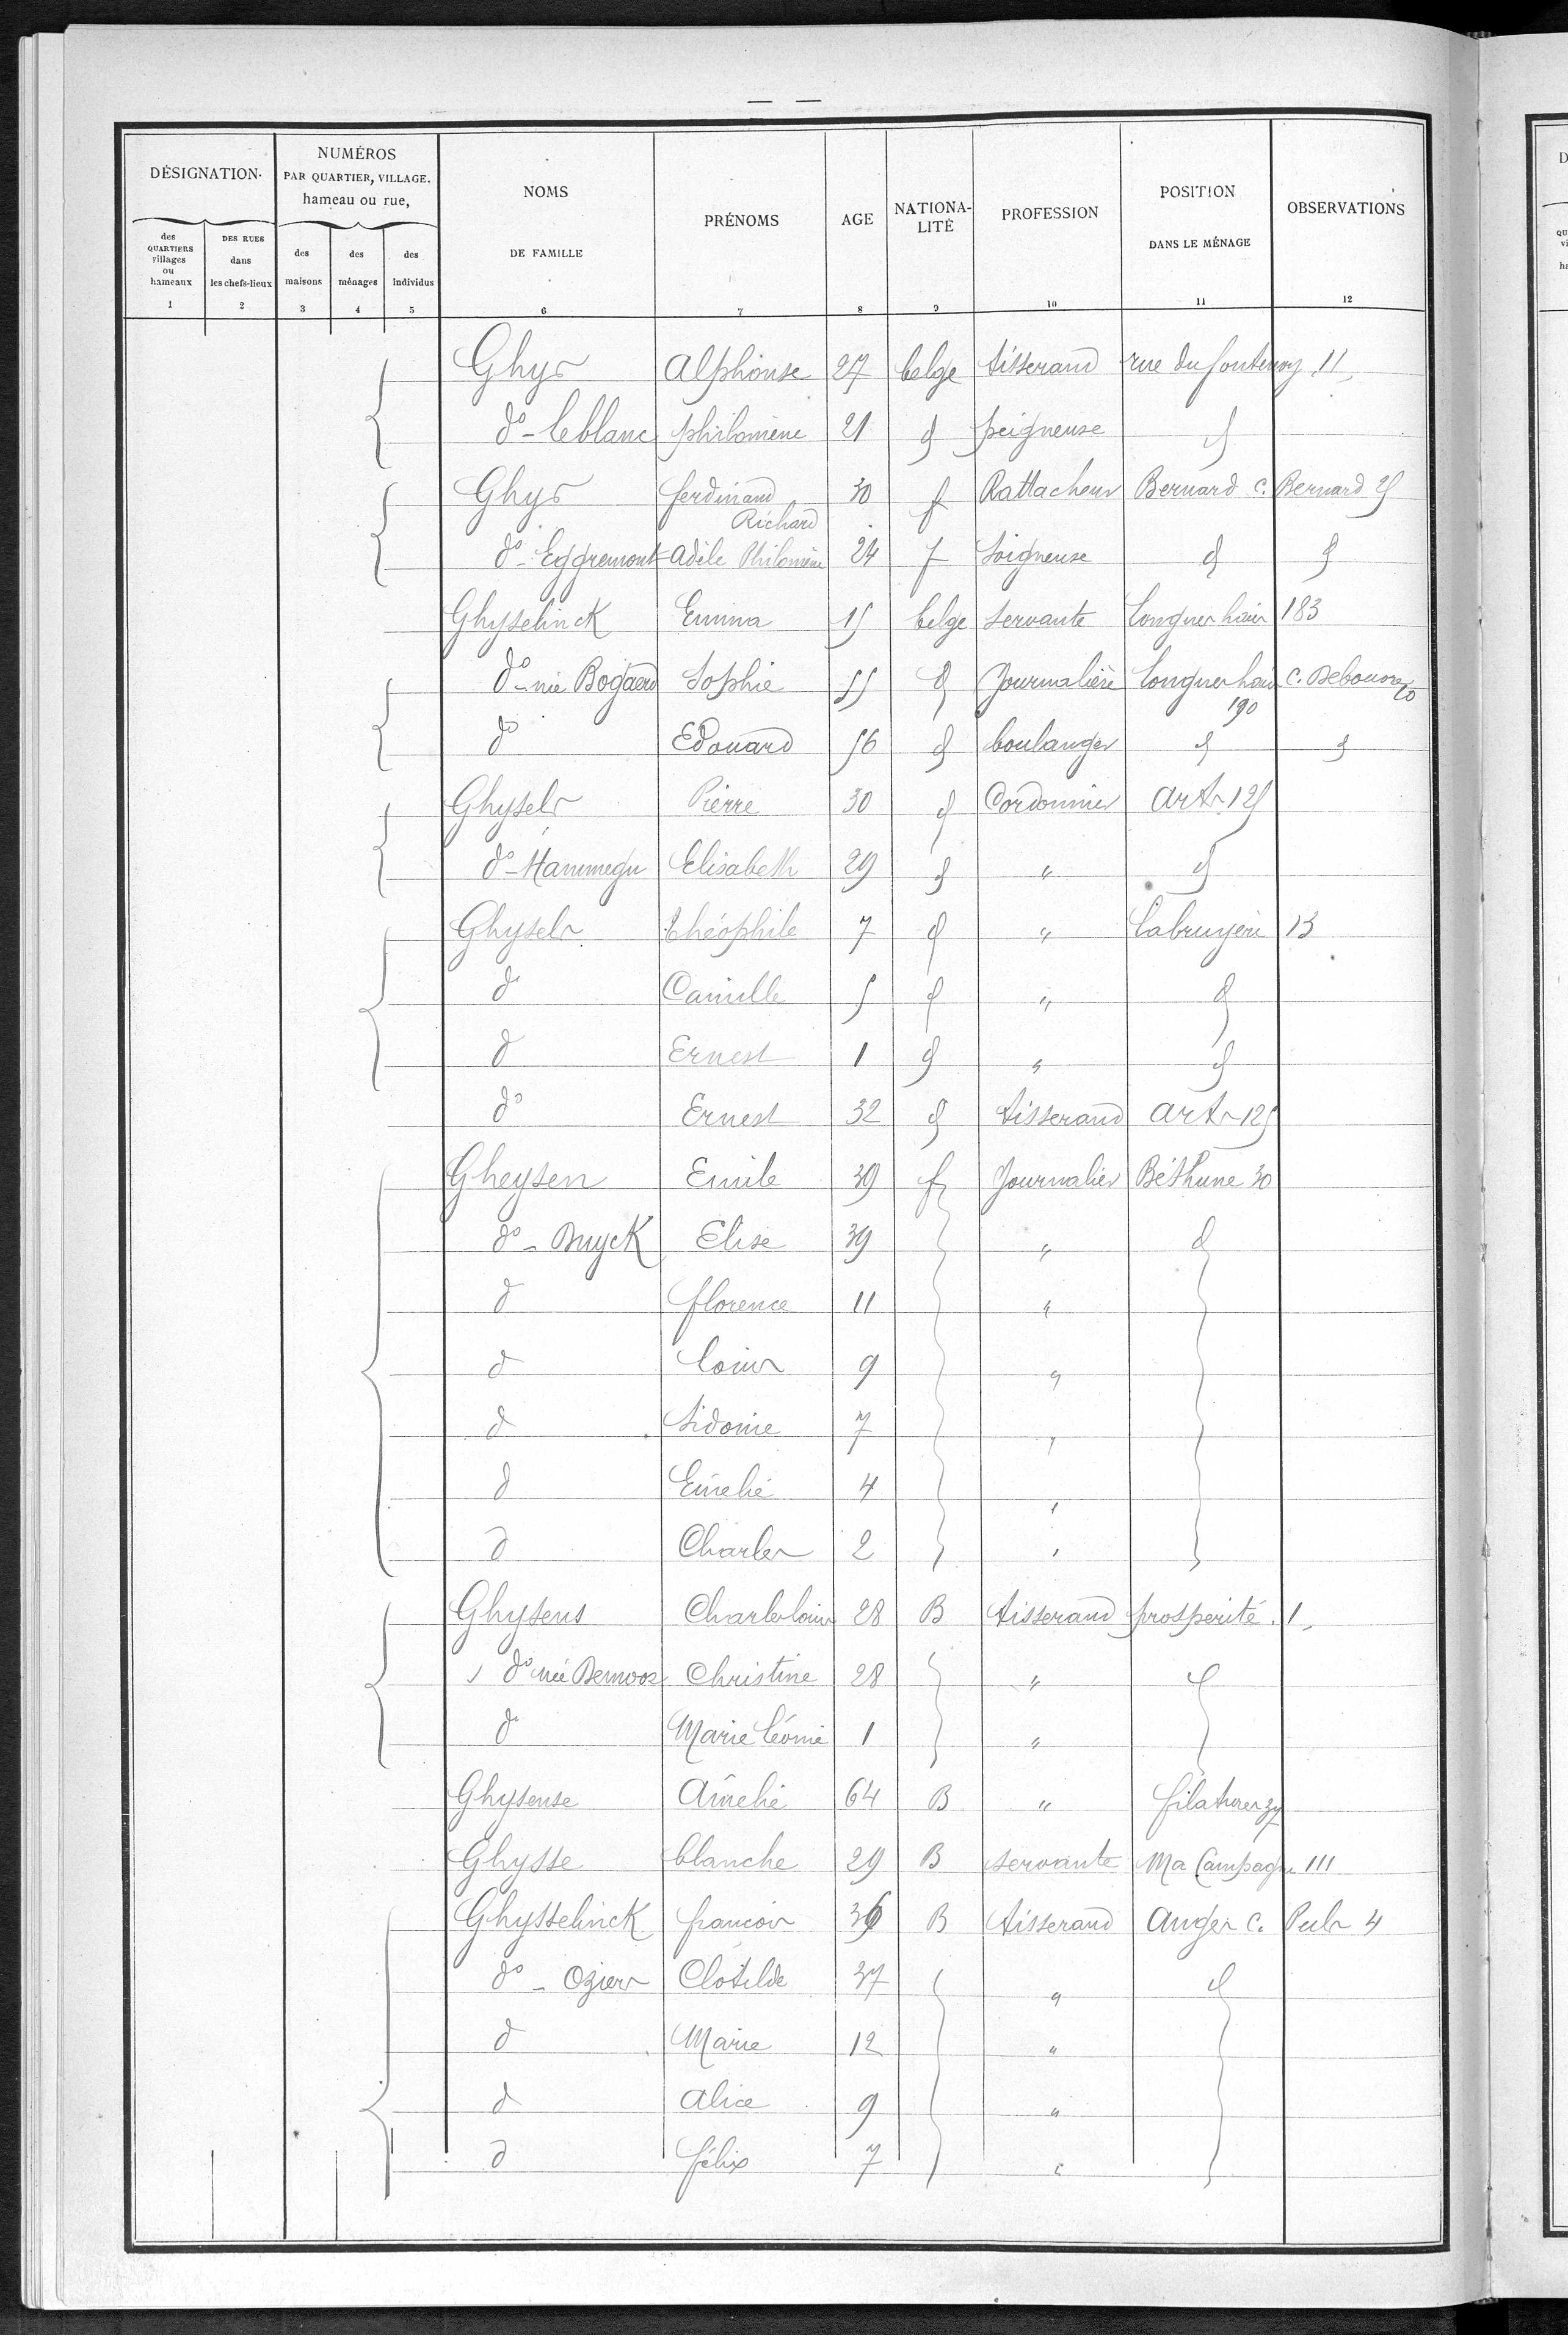 — —
DÉSIGNATION. NUMÉROS PAR QUARTIER, VILLAGE. hameau ou rue, NOMS DE FAMILLE PRÉNOMS AGE NATIONA-LITÉ PROFESSION POSITION DANS LE MÉNAGE OBSERVATIONS
des QUARTIERS villages ou hameaux DES RUES dans les chefs-lieux des maisons des ménages des individus
1 2 3 4 5 6 7 8 9 10 11 12
Ghys Alphonse 27 belge tisserand rue du fontenoy 11
d° - Leblanc philomène 21 d peigneuse d
Ghys ferdinand Richard 30 f Rattacheur Bernard c. Bernard 25
d° - Eggremont Adèle Philomène 24 f Soigneuse d d
Ghyselinck Emma 15 belge servante longues haies 183
d° - née Bogaerd Sophie 55 d Journalière longues haies 190 c. Debouvre
d° Edouard 56 d boulanger d d
Ghysels Pierre 30 d Cordonnier Arts 125
d° - Hammegu Elisabeth 29 d " d
Ghysels théophile 7 d " Labruyère 13
d° Camille 5 d " d
d Ernest 1 d " d
d° Ernest 32 d tisserand Arts 125
Gheysen Emile 39 f Journalier Béthune 30
d° - Buyck Elise 39 " d
d florence 11 "
d Louis 9 "
d Sidonie 7 "
d Emélie 4 "
d Charles 2 "
Ghysens Charles louis 28 B tisserand prospérité. 1
d° née Bernoos Christine 28 " d
d° Marie léonie 1 "
Ghysense Amélie 64 B " filatures 37
Ghysse blanche 29 B servante Ma Campagne 111
Ghysselinck françois 36 B tisserand Anges c. Puls 4
d° - Ogiers Clotilde 37 " d
d Marie 12 "
d Alice 9 "
d félix 7 "